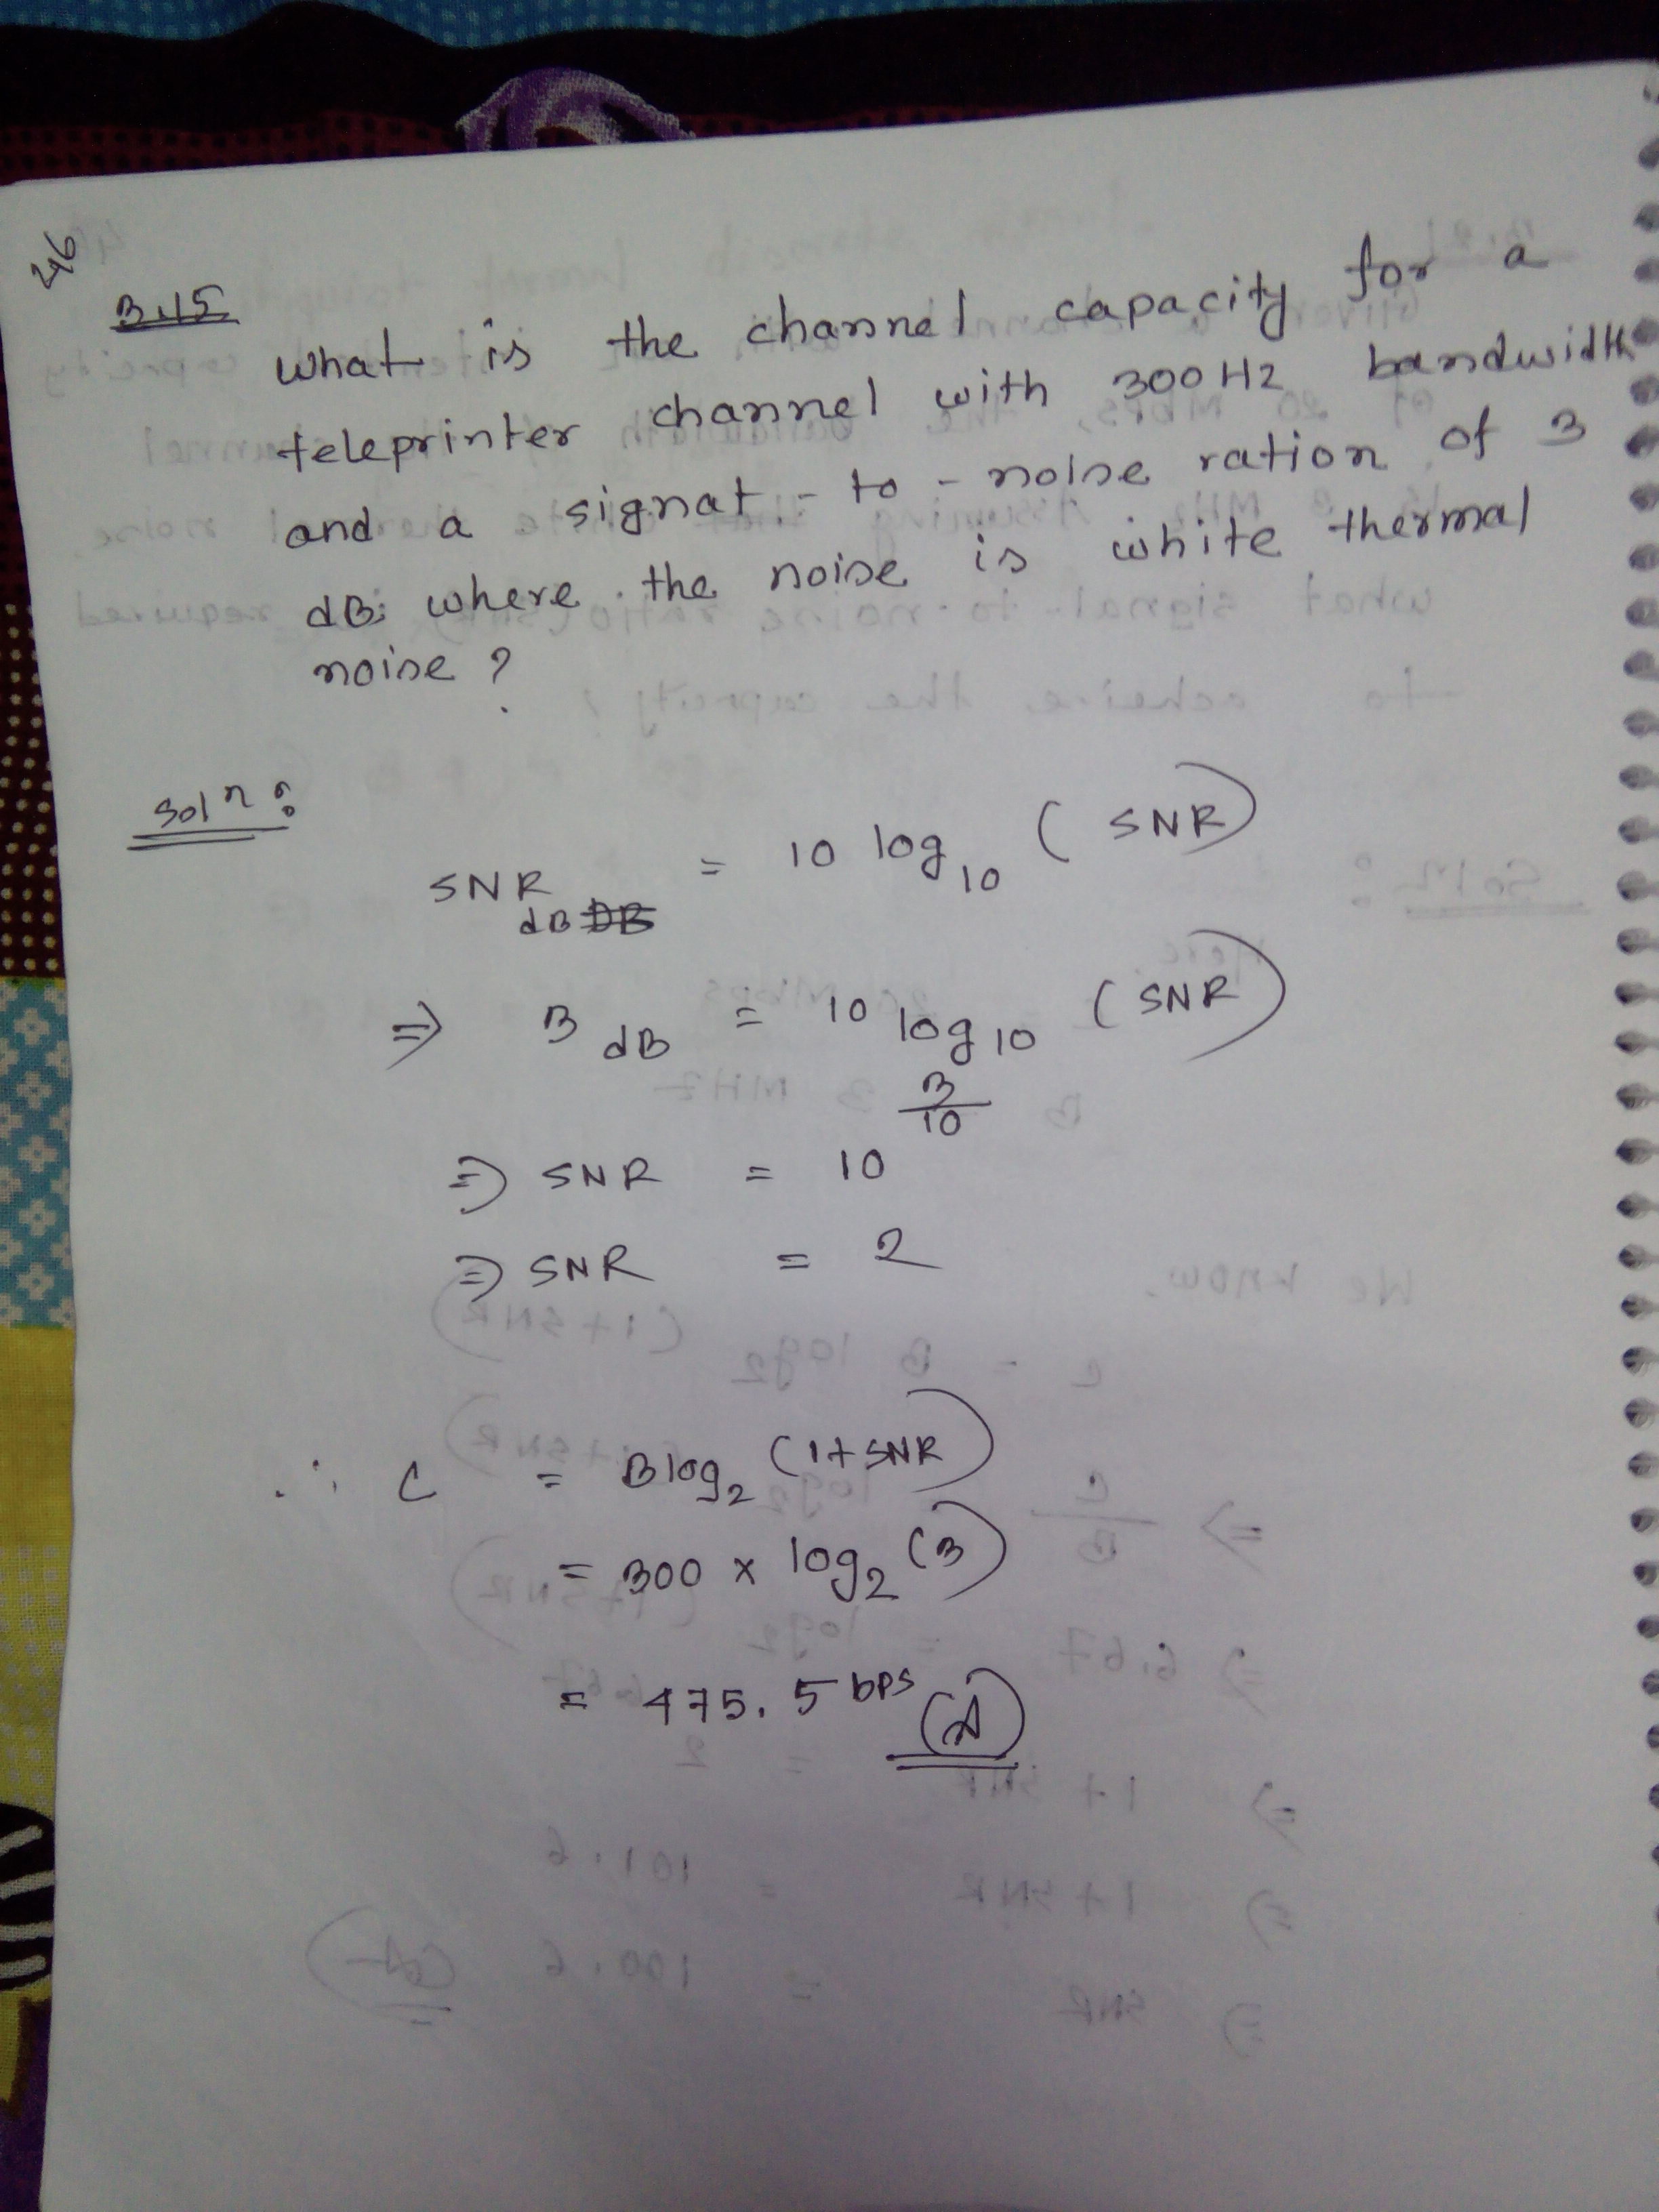 46
3.15
what is the channel capacity for a
teleprinter channel with 300Hz bandwidth
and a signat - to - noise ration of 3
dB; where the noise is white thermal
noise ?
Soln :
SNR dB = 10 log10 (SNR)
⇒ 3 dB = 10 log10 (SNR)
⇒ SNR = 10^(3/10)
⇒ SNR = 2
∴ C = B log2 (1+SNR)
= 300 x log2 (3)
= 475.5 bps (A)